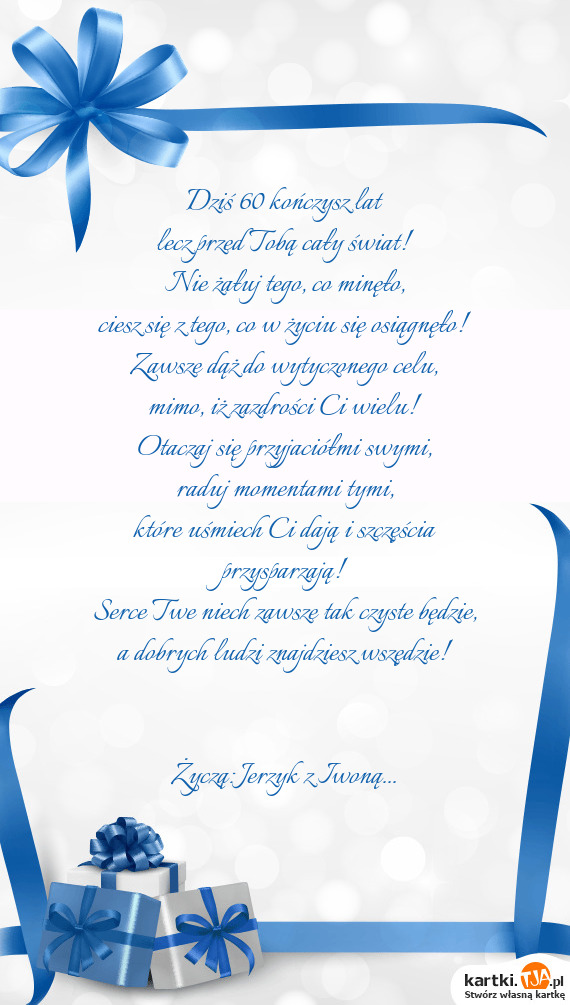 Dziś 60 kończysz lat
lecz przed Tobą cały świat!
Nie żałuj tego, co minęło,
ciesz się z tego, co w życiu się osiągnęło!
Zawsze dąż do wytyczonego celu,
mimo, iż zazdrości Ci wielu!
Otaczaj się przyjaciółmi swymi,
raduj momentami tymi,
które uśmiech Ci dają i szczęścia
przysparzają!
Serce Twe niech zawsze tak czyste będzie,
a dobrych ludzi znajdziesz wszędzie!
Życzą: Jerzyk z Iwoną...
kartki.TJA.pl
Stwórz własną kartkę